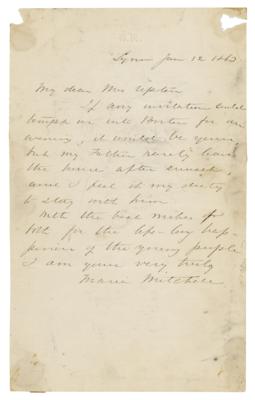 Lynn Jan 12 1863
My dear Mrs Upton
If any invitation could
tempt me into Boston for an
evening, it would be yours
but my Father rarely leaves
the house after sunset,
and I feel it my duty
to stay with him
With the best wishes for
both for the life-long hap-
piness of the young people
I am yours very truly
Maria Mitchell